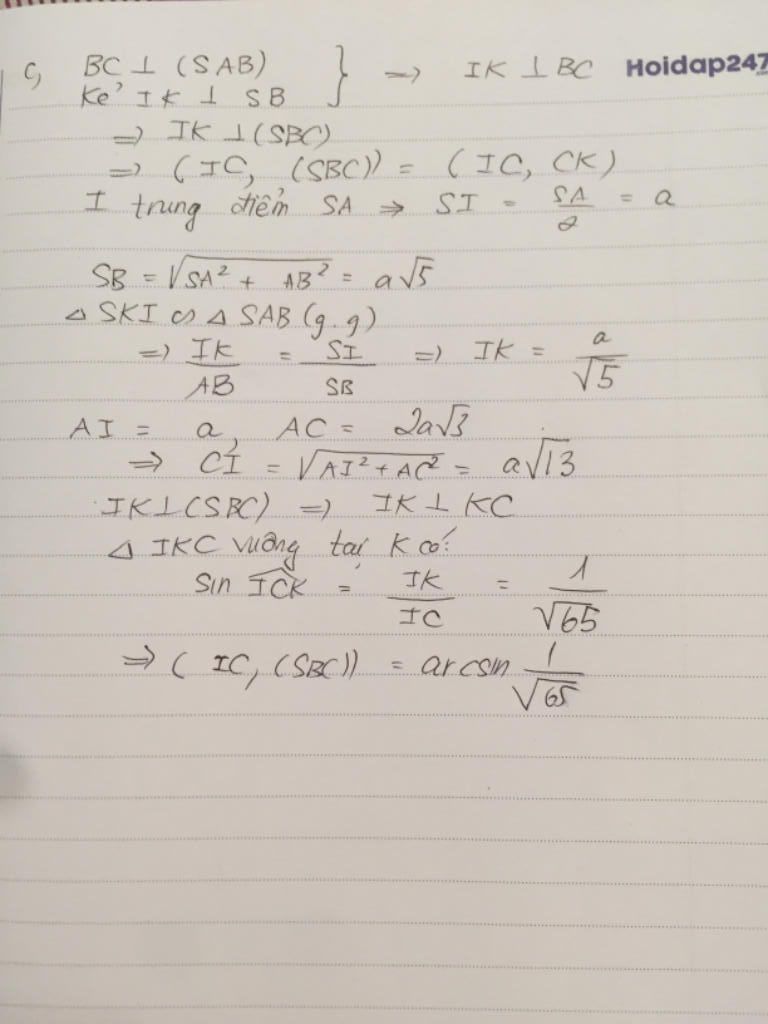 c, BC ⊥ (SAB) } => IK ⊥ BC Hoidap247
Kẻ IK ⊥ SB
=> IK ⊥ (SBC)
=> (IC, (SBC)) = (IC, CK)
I trung điểm SA => SI = SA/2 = a
SB = √(SA² + AB²) = a√5
△ SKI ∽ △ SAB (g.g)
=> IK/AB = SI/SB => IK = a/√5
AI = a, AC = 2a√3
=> CI = √(AI² + AC²) = a√13
IK ⊥ (SBC) => IK ⊥ KC
△ IKC vuông tại K có:
Sin ICK = IK/IC = 1/√65
=> (IC, (SBC)) = arcsin 1/√65